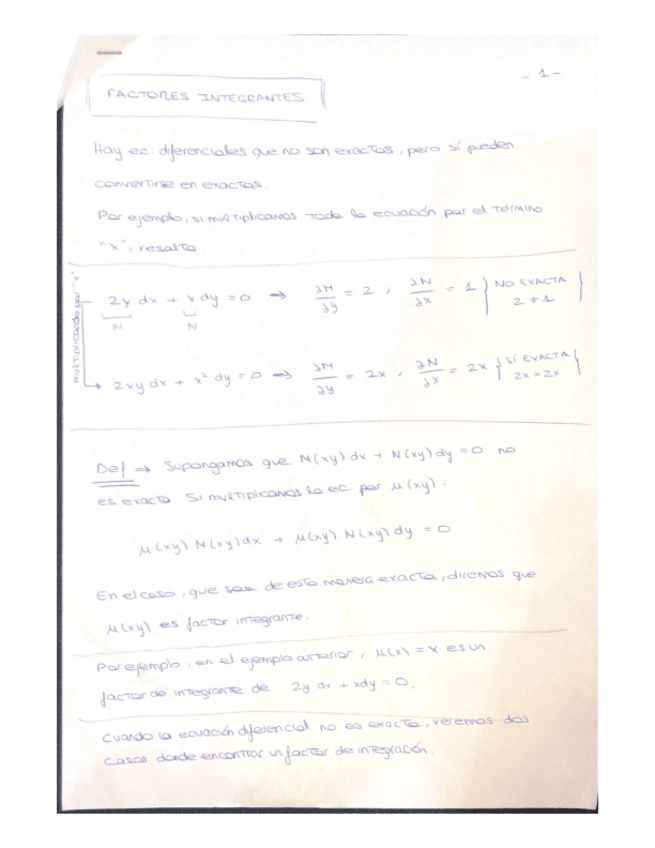 - 1 -
FACTORES INTEGRANTES
Hay ec. diferenciales que no son exactas, pero sí pueden
convertirse en exactas.
Por ejemplo, si multiplicamos toda la ecuación por el término
"x", resulta.
multiplicando por "x"
2y dx + x dy = 0 → ∂M/∂y = 2 , ∂N/∂x = 1 } NO EXACTA 2 ≠ 1 }
M N
2xy dx + x² dy = 0 → ∂M/∂y = 2x , ∂N/∂x = 2x } SÍ EXACTA 2x = 2x {
Def ⇒ Supongamos que M(xy) dx + N(xy) dy = 0 no
es exacta. Si multiplicamos la ec. por μ(xy) :
μ(xy) M(xy) dx + μ(xy) N(xy) dy = 0
En el caso, que sea de esta manera exacta, diremos que
μ(xy) es factor integrante.
Por ejemplo, en el ejemplo anterior, μ(x) = x es un
factor de integrante de 2y dx + xdy = 0.
Cuando la ecuación diferencial no es exacta, veremos dos
casos donde encontrar un factor de integración.